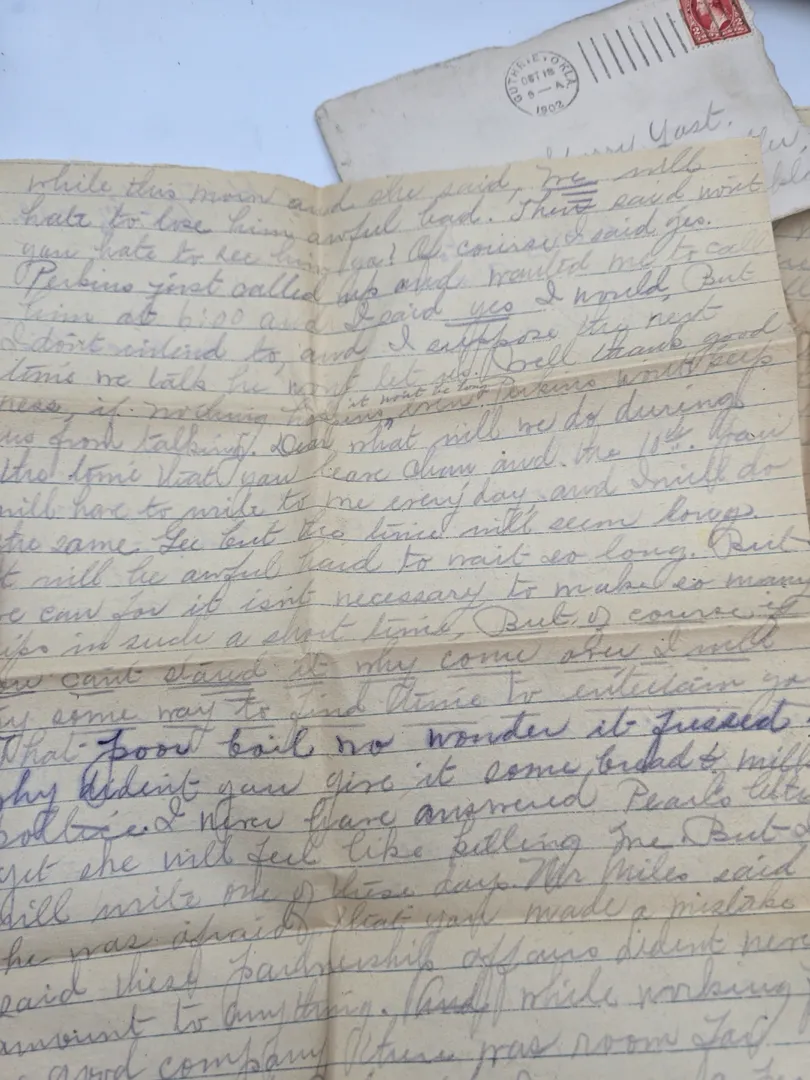 GUTHRIE, OKLA.
OCT 18
1902
Harry Yost.
while this morn and she said, we will
hate to lose him awful bad. Then said wont
you hate to see him go? Of course I said yes.
Perkins just called up and wanted me to call
him at 6:00 and I said yes I would, But
I don't intend to, and I suppose the next
time we talk he wont let us. Well thank good
it wont be long
ness, if nothing happens even Perkins wont keep
us from talking. Dear what will we do during
the time that you leave Chan and the 10th. You
will have to write to me every day, and I will do
the same. Gee but the time will seem long.
t will be awful hard to wait so long. But
we can for it isn't necessary to make so many
ips in such a short time, But, of course if
you cant stand it why come over I will
try some way to find time to entertain yo
What poor boil no wonder it fussed
why dident you give it some bread & milk
poltice. I never have answered Pearls lette
yet she will feel like killing me But I
will write one of these days. Mr Miles said
he was afraid that you made a mistake
said these partnership affairs dident never
amount to anything. And while working
good company there was room for